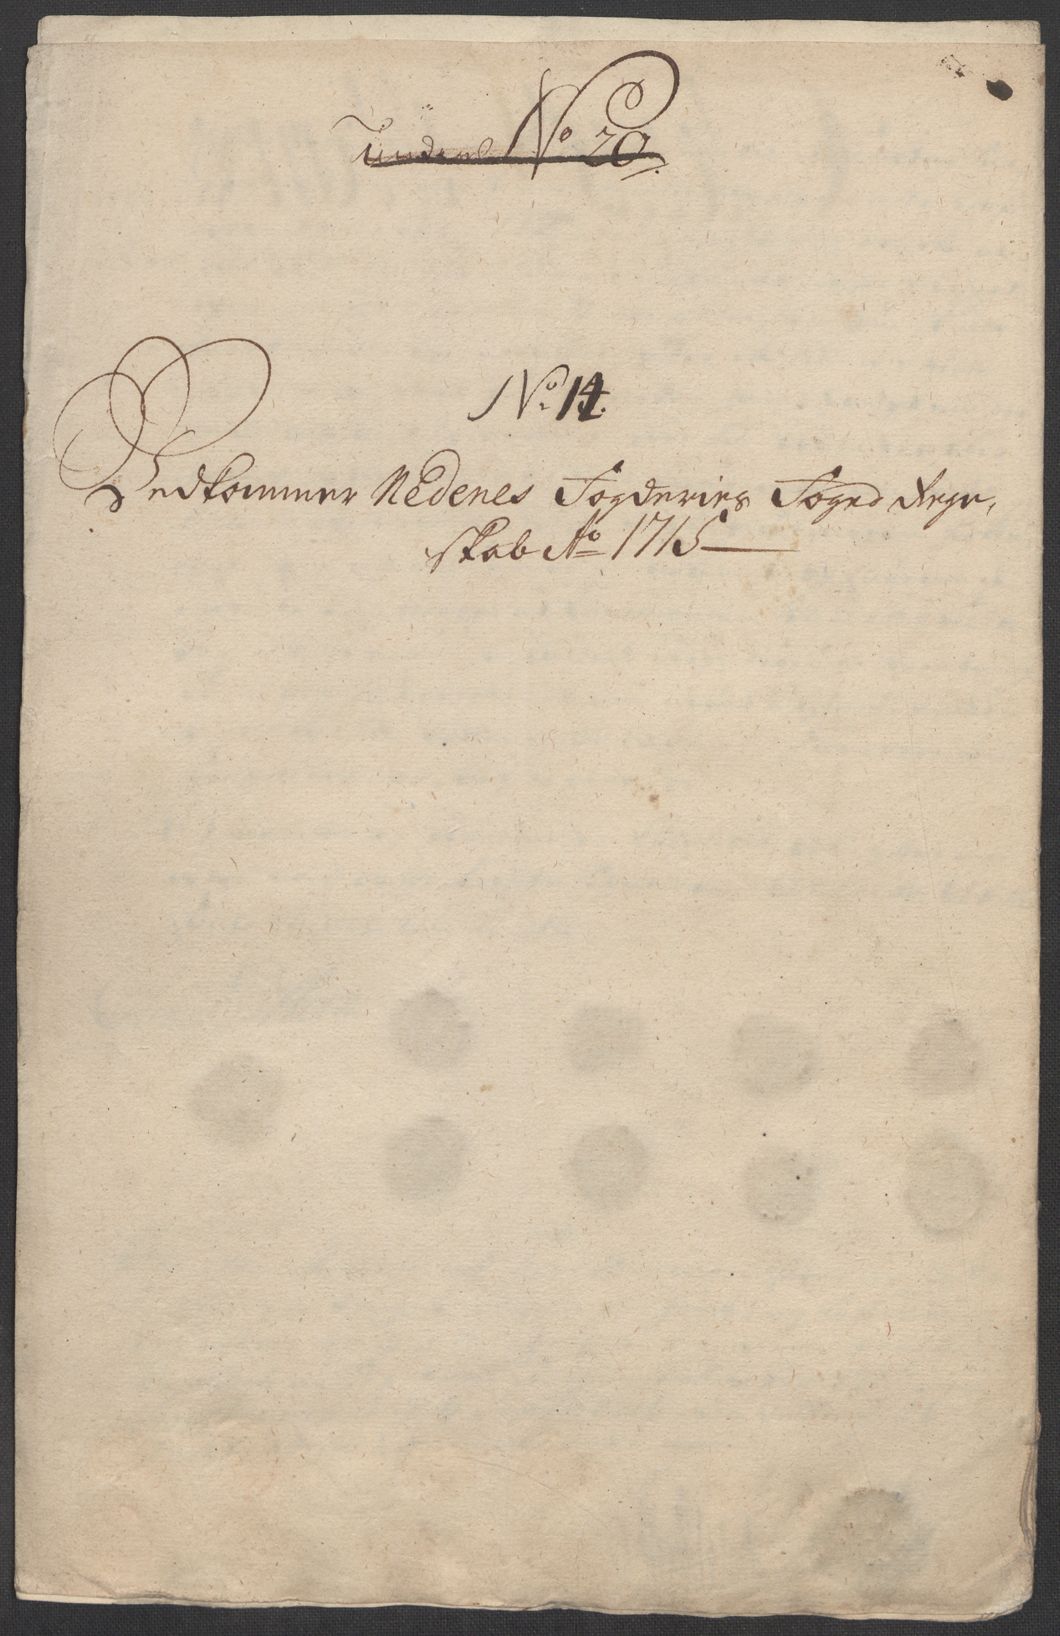 No 20.
No 14.
Vedkommer Nedenes Fogderies Foged Rege,
skab Ao 1715